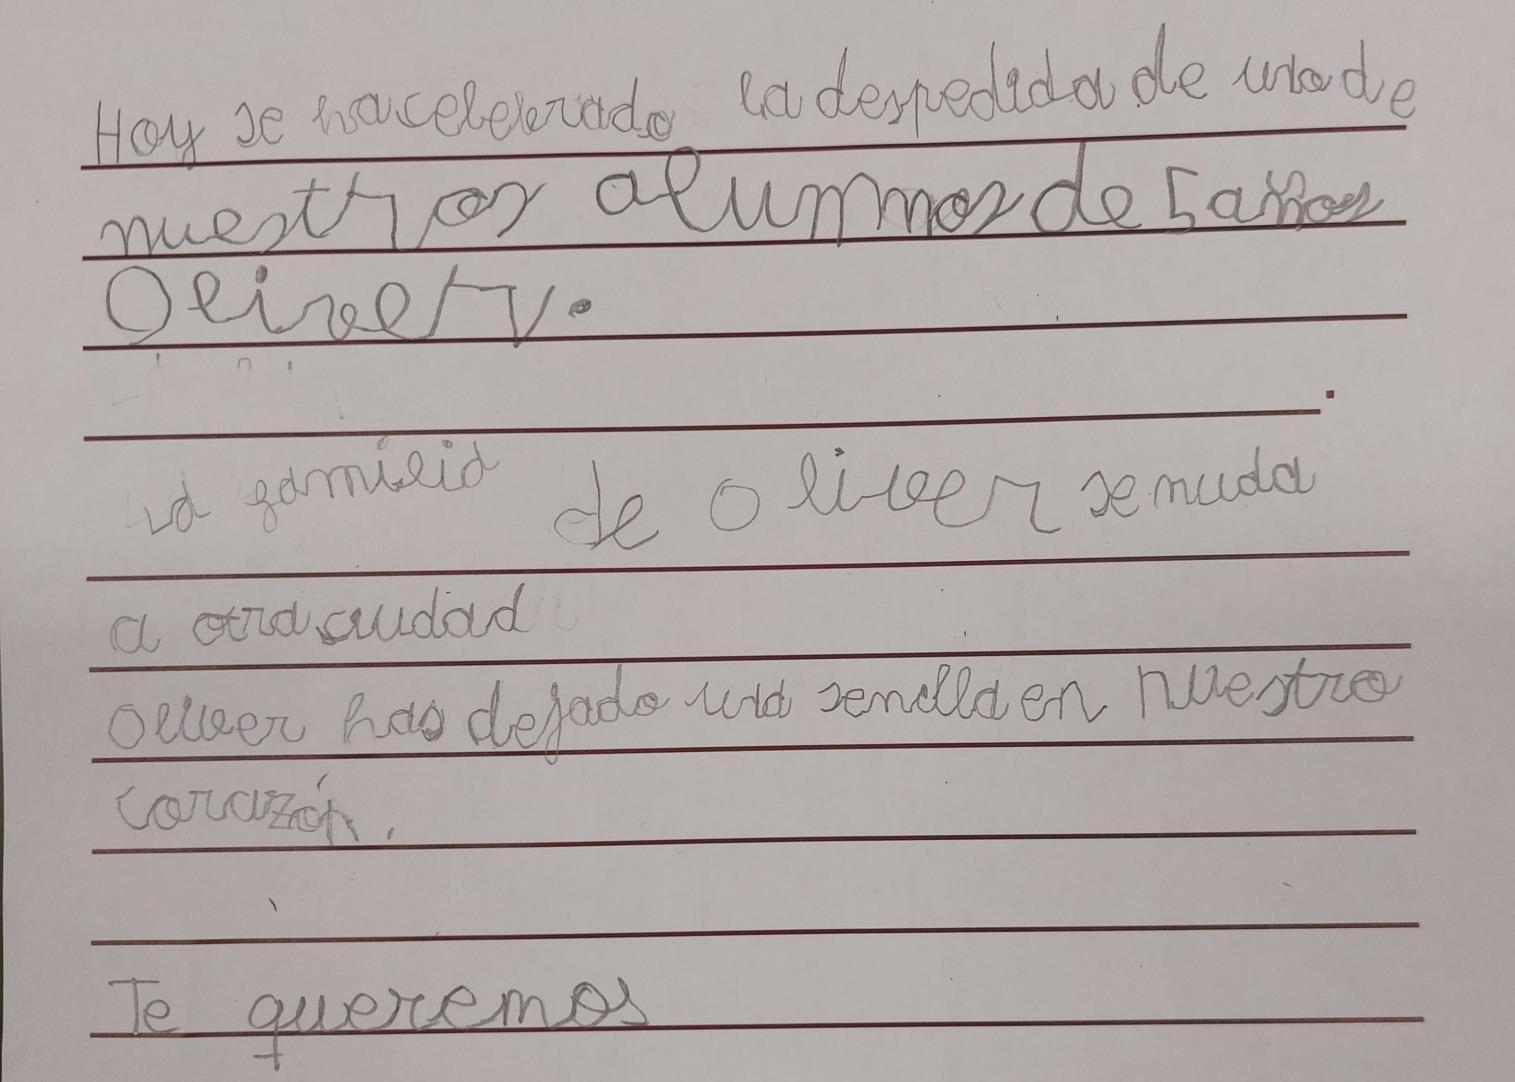 Hoy se ha celebrado la despedida de uno de
nuestros alumnos de 5 años
Oliver.
La familia de oliver se muda
a otra ciudad
Oliver has dejado una semilla en nuestro
corazón.
Te queremos